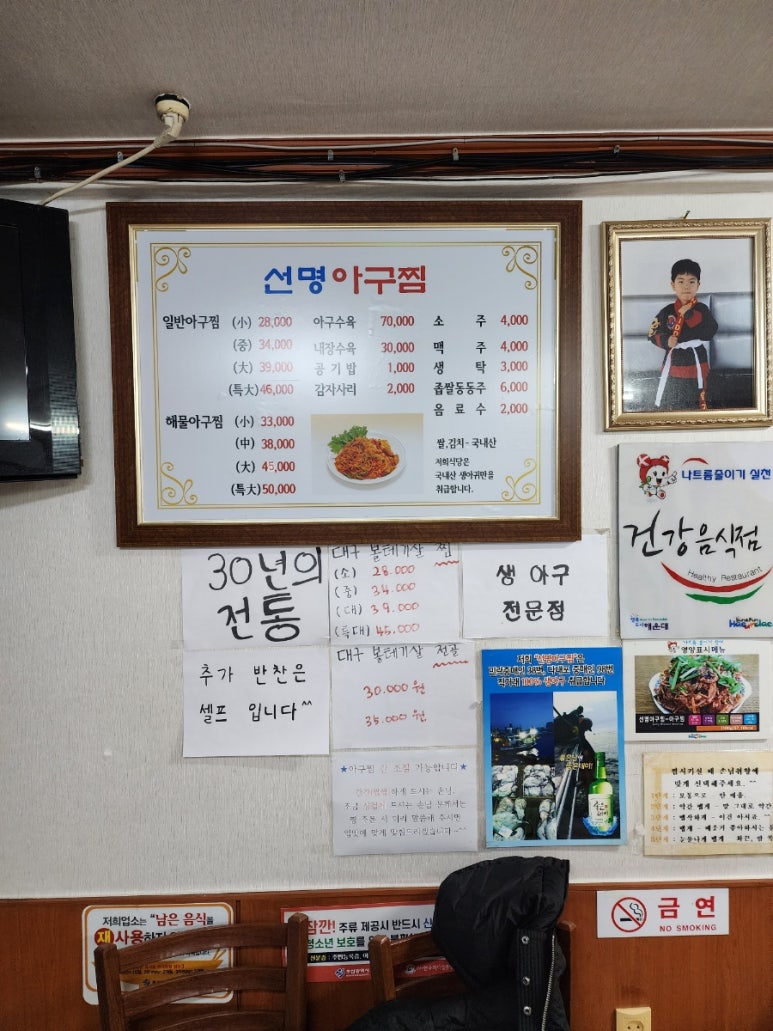 선명아구찜
일반아구찜 (小) 28,000
(중) 34,000
(大) 39,000
(특大) 46,000
해물아구찜 (小) 33,000
(中) 38,000
(大) 45,000
(특大) 50,000
아구수육 70,000
내장수육 30,000
공기밥 1,000
감자사리 2,000
소주 4,000
맥주 4,000
생탁 3,000
좁쌀동동주 6,000
음료수 2,000
쌀,김치-국내산
저희식당은
국내산 생아귀만을
취급합니다.
나트륨줄이기 실천
건강음식점
Healthy Restaurant
해운대
30년의
전통
대구 볼테기살 찜
(소) 28.000
(중) 34.000
(대) 39.000
(특대) 45.000
생 아구
전문점
추가 반찬은
셀프 입니다^^
대구 볼테기살 전골
30.000원
35.000원
저희 "선명아구찜"은
100% 생아구 취급합니다
영양표시메뉴
선명아구찜-아구찜
★아구찜 간 조절 가능합니다★
맞게 선택해주세요.
저희업소는 "남은 음식"을
재사용하지
잠깐! 주류 제공시 반드시
청소년 보호를
금연
NO SMOKING